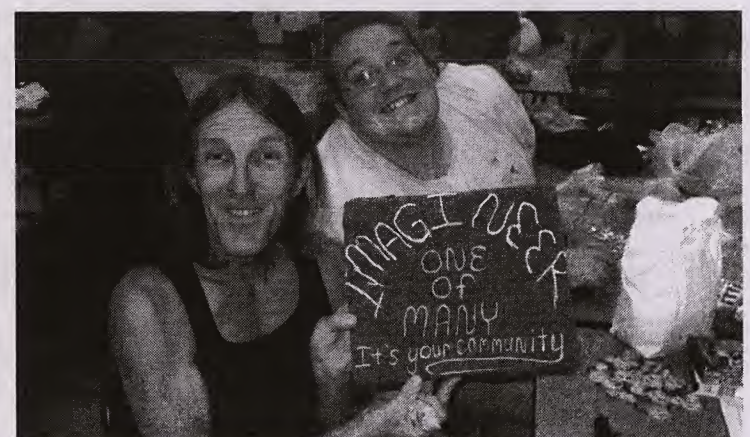 IMAGINEER
ONE
OF
MANY
It's your community